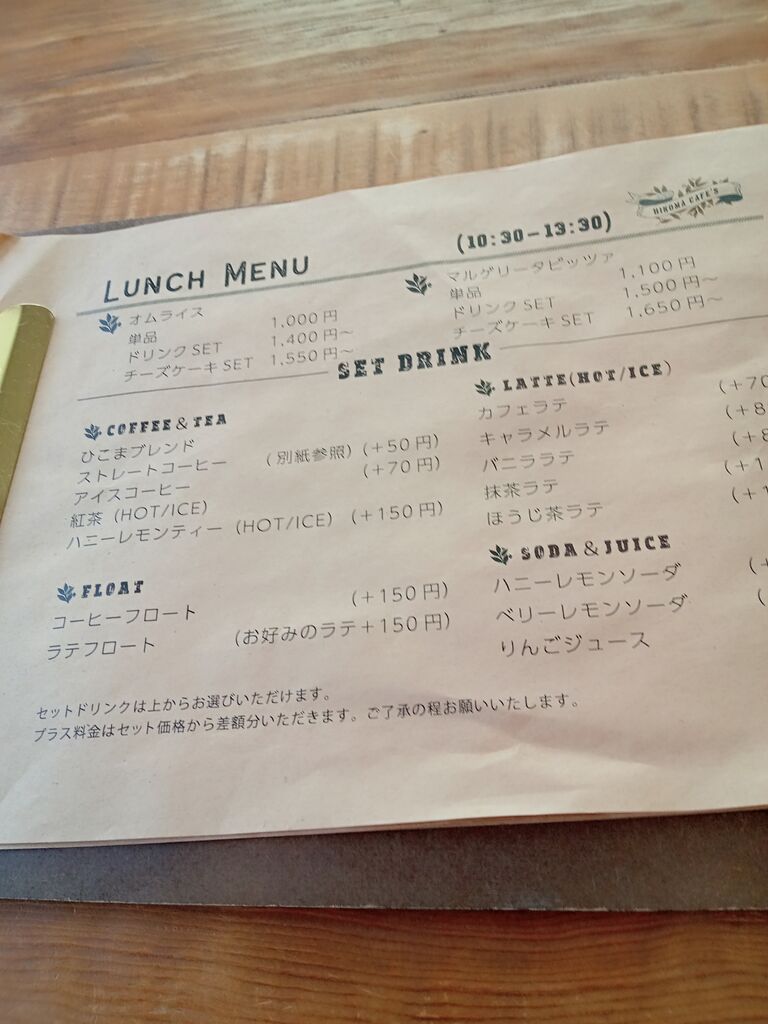 HIKOMA CAFE'S
LUNCH MENU (10:30-13:30)
オムライス
単品 1,000円
ドリンクSET 1,400円～
チーズケーキSET 1,550円～
マルゲリータピッツァ
単品 1,100円
ドリンクSET 1,500円～
チーズケーキSET 1,650円～
SET DRINK
COFFEE & TEA
ひこまブレンド
ストレートコーヒー (別紙参照) (+50円)
アイスコーヒー (+70円)
紅茶 (HOT/ICE)
ハニーレモンティー (HOT/ICE) (+150円)
FLOAT
コーヒーフロート (+150円)
ラテフロート (お好みのラテ+150円)
LATTE(HOT/ICE)
カフェラテ (+70
キャラメルラテ (+8
バニララテ (+8
抹茶ラテ (+1
ほうじ茶ラテ (+1
SODA & JUICE
ハニーレモンソーダ (+
ベリーレモンソーダ (
りんごジュース
セットドリンクは上からお選びいただけます。
プラス料金はセット価格から差額分いただきます。ご了承の程お願いいたします。